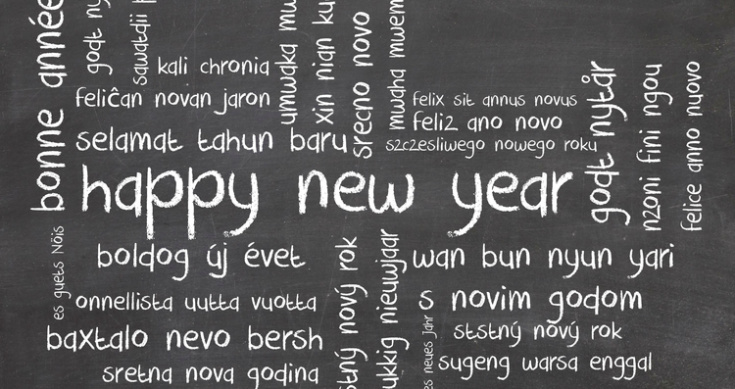 bonne année
godt ny
sawatdii
kali chronia
feliĉan novan jaron
selamat tahun baru
umwaka mw
xin nian ku
srecno novo
mwaha mwem
felix sit annus novus
feliz ano novo
szczesliwego nowego roku
godt nytår
nzoni fini ngou
felice anno nuovo
happy new year
es guets Nöis
boldog új évet
onnellista uutta vuotta
baxtalo nevo bersh
sretna nova godina
stný nový rok
ukkig nieuwjaar
wan bun nyun yari
s novim godom
ststný nový rok
es neues Jahr
sugeng warsa enggal